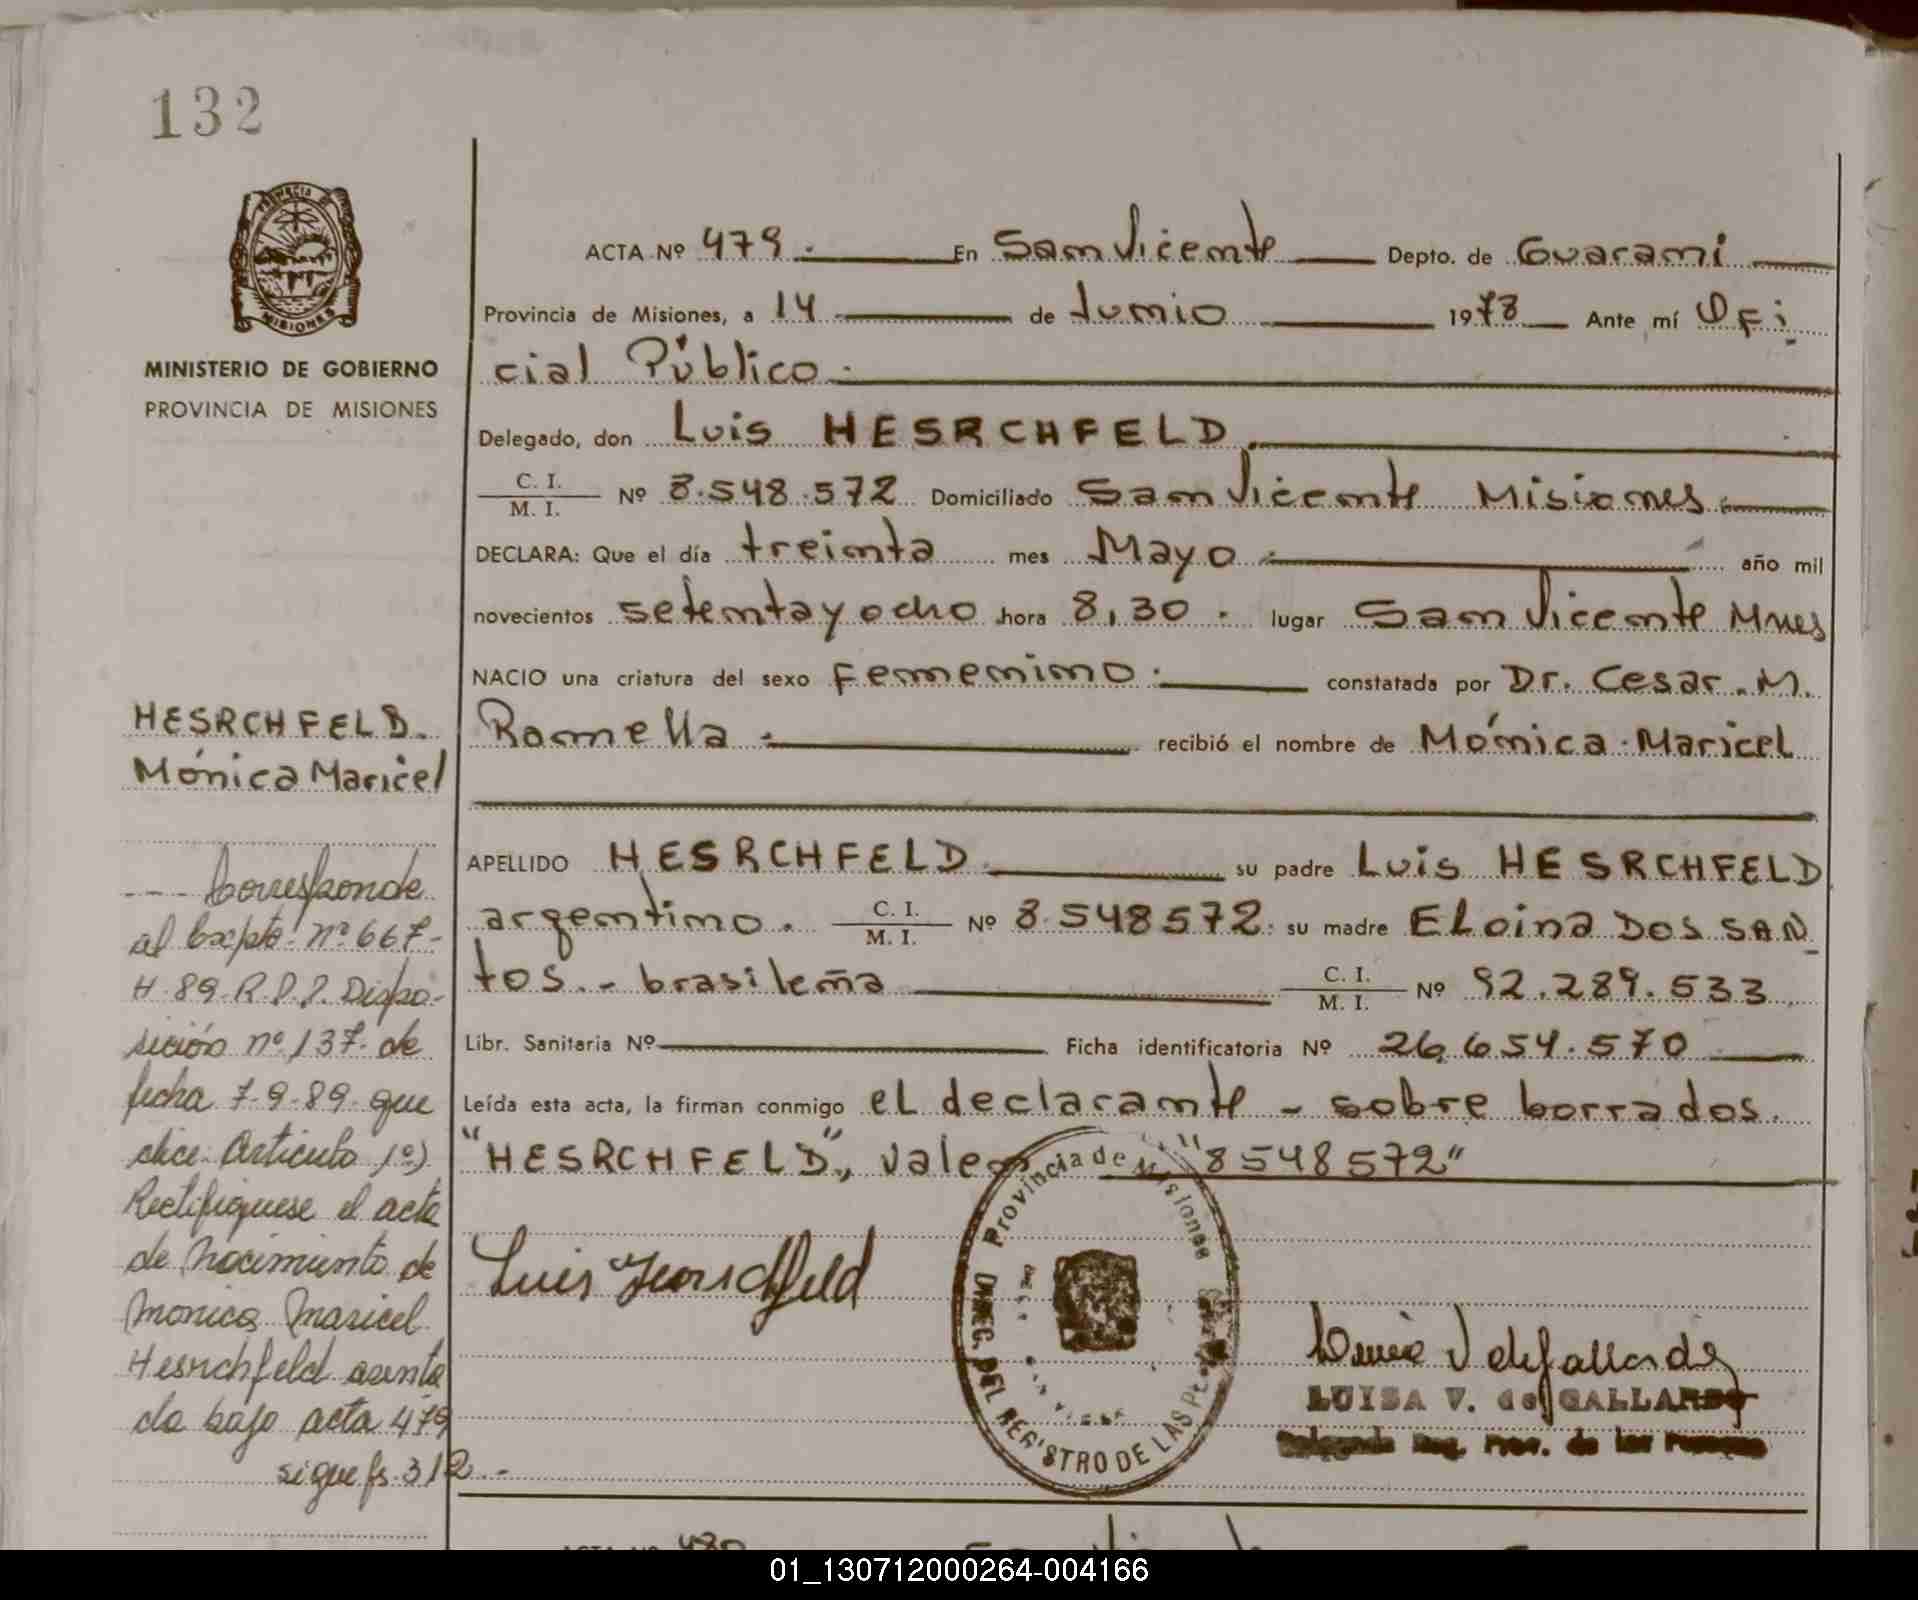 132
PROVINCIA DE
MISIONES
MINISTERIO DE GOBIERNO
PROVINCIA DE MISIONES
ACTA Nº 479. En San Vicente Depto. de Guaraní
Provincia de Misiones, a 14 de Junio 1978 Ante mí Ofi
cial Público.
Delegado, don Luis HESRCHFELD.
C. I.
M. I. Nº 8.548.572 Domiciliado San Vicente Misiones.
DECLARA: Que el día treinta mes Mayo. año mil
novecientos setenta y ocho hora 8,30. lugar San Vicente Mnes
NACIO una criatura del sexo Femenino. constatada por Dr. Cesar. M.
Ramella. recibió el nombre de Mónica Maricel
APELLIDO HESRCHFELD su padre Luis HESRCHFELD
argentino. C. I.
M. I. Nº 8.548572. su madre ELoina Dos SAN
tos.- brasileña C. I.
M. I. Nº 92.289.533
Libr. Sanitaria Nº Ficha identificatoria Nº 26.654.570
Leída esta acta, la firman conmigo el declarante - sobre borrados.
"HESRCHFELD", vale "8548572"
HESRCHFELD.
Mónica Maricel
---- Corresponde
al Expte. nº 667-
H-89-R.P.P. Dispo-
sición nº 137- de
fecha 7-9-89- que
dice: Artículo 1º)
Rectifíquese el acta
de Nacimiento de
Monica Maricel
Hesrchfeld asenta
da bajo acta 479
sigue fs. 312.-
Provincia de Misiones
DIREC. DEL REGISTRO DE LAS
Luis
LUISA V. de GALLARDO
ACTA Nº 480
01_130712000264-004166